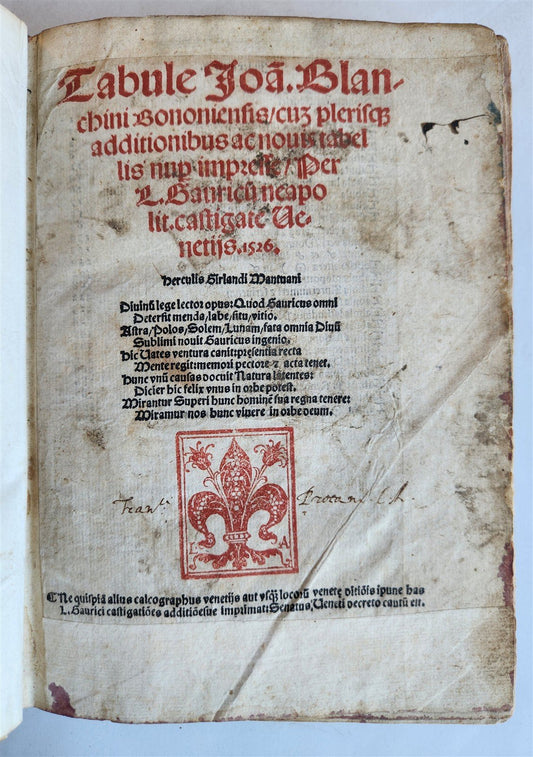 Tabule Joā. Blan-
chini Bononiensis/cuʒ plerisqʒ
additionibus ac nouis tabel
lis nup impresse/Per
L. Gauricū neapo
lit. castigate Ue-
netijs. 1526.
Herculis Girlandi Mantuani
Diuinū lege lector opus: Quod Gauricus omni
Detersit menda/labe/situ/vitio.
Astra/Polos/Solem/Lunam/fata omnia Diuū
Sublimi nouit Gauricus ingenio.
Hic Uates ventura canit: presentia recta
Mente regit: memori pectore & acta tenet.
Hunc vnū causas docuit Natura latentes:
Dicier hic felix vnus in orbe potest.
Mirantur Superi hunc hominē sua regna tenere:
Miramur nos hunc viuere in orbe deum.
L A
Fran.ci
¶Ne quispiā alius calcographus venetijs aut vsqʒ locorū venete ditiōis ipune has
L. Gaurici castigatiōes additiōesue imprimat: Senatus, Ueneti decreto cautū est.